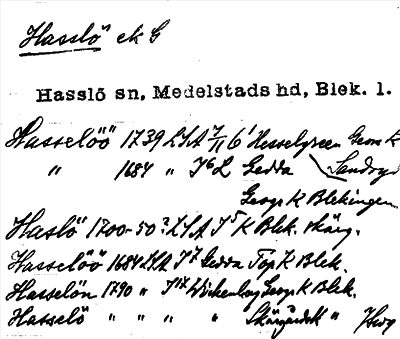 Hasslö ek G
Hasslö sn, Medelstads hd, Blek. l.
Hasselöö 1739 LSA 7/11 6' Hesselgreen Geom K
" 1684 " J6L Gedda Landsyd
Geogr K Blekingen
Haslö 1700-50? LSA J5 K Blek. skärg.
Hasselöö 1684 LSA J7 Gedda Top K Blek.
Hasselön 1790 " J17 Wickenberg Geogr K Blek.
Hasselö " " " " Skärgårdsk "